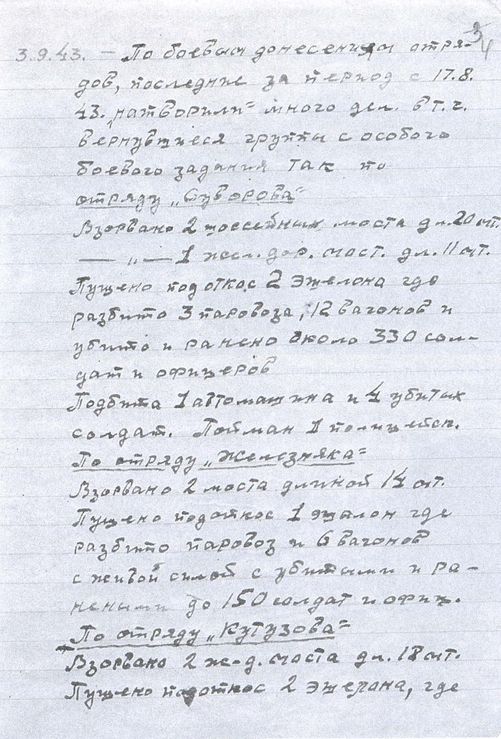 3.9.43. – По боевым донесениям отря-
дов, последние за период с 17.8.
43. „натворили“ много дел. в т.ч.
вернувшиеся группы с особого
боевого задания так по
отряду „Суворова“
Взорвано 2 шоссейных моста дл. 20 мт.
— „ — 1 жел. дор. мост. дл. 11 мт.
Пущено под откос 2 эшелона где
разбито 3 паровоза, 12 вагонов и
убито и ранено около 330 сол-
дат и офицеров
Подбита 1 автомашина и 4 убитых
солдат. Пойман 1 полицейск.
По отряду „Железняка“
Взорвано 2 моста длиной 14 мт.
Пущено под откос 1 эшалон где
разбито паровоз и 6 вагонов
с живой силой с убитыми и ра-
неными до 150 солдат и офиц.
По отряду „Кутузова“
Взорвано 2 ж-д. моста дл. 18 мт.
Пущено под откос 2 эшелона, где